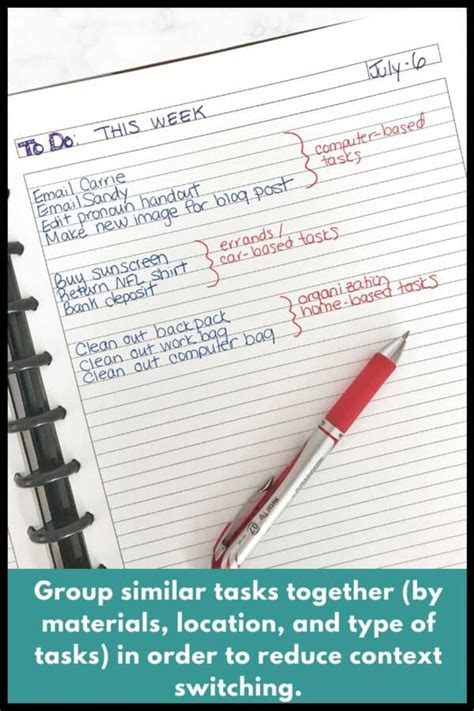 July-6
To Do: THIS WEEK
Email Carrie
Email Sandy
Edit pronoun handout
Make new image for blog post
computer-based
tasks
Buy sunscreen
Return NFL shirt
Bank deposit
errands/
car-based tasks
Clean out backpack
Clean out work bag
Clean out computer bag
organization
home-based tasks
Group similar tasks together (by
materials, location, and type of
tasks) in order to reduce context
switching.